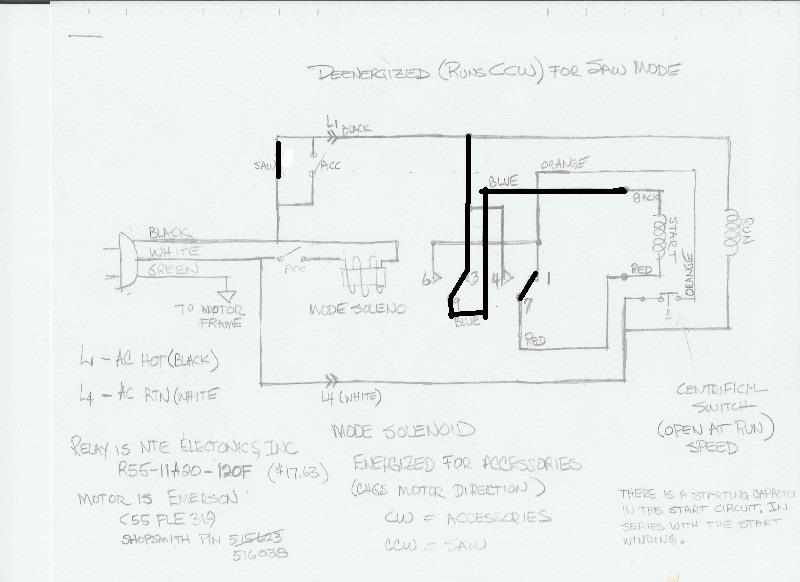 DEENERGIZED (RUNS CCW) FOR SAW MODE
L1 BLACK
SAW
ACC
ORANGE
BLUE
BLACK
START
RUN
BLACK
WHITE
GREEN
ACC
6
3
4
1
RED
ORANGE
TO MOTOR
FRAME
MODE SOLENO
9
7
BLUE
RED
L1 - AC HOT (BLACK)
L4 - AC RTN (WHITE
L4 (WHITE)
CENTRIFICAL
SWITCH
(OPEN AT RUN)
SPEED
RELAY IS NTE ELECTONICS, INC
R55-11A20-120F ($17.63)
MOTOR IS EMERSON
C55 FLE 319
SHOPSMITH P/N 515623
516038
MODE SOLENOID
ENERGIZED FOR ACCESSORIES
(CHGS MOTOR DIRECTION)
CW = ACCESSORIES
CCW = SAW
THERE IS A STARTING CAPACITO
IN THE START CIRCUIT, IN
SERIES WITH THE START
WINDING.